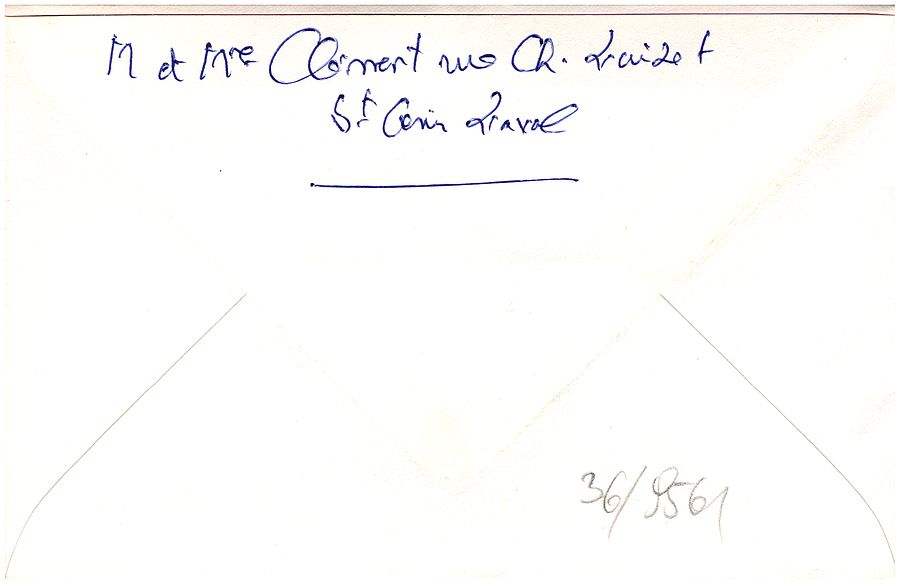 M et Mme Clément rue Ch.
St Genis Laval
36/9561